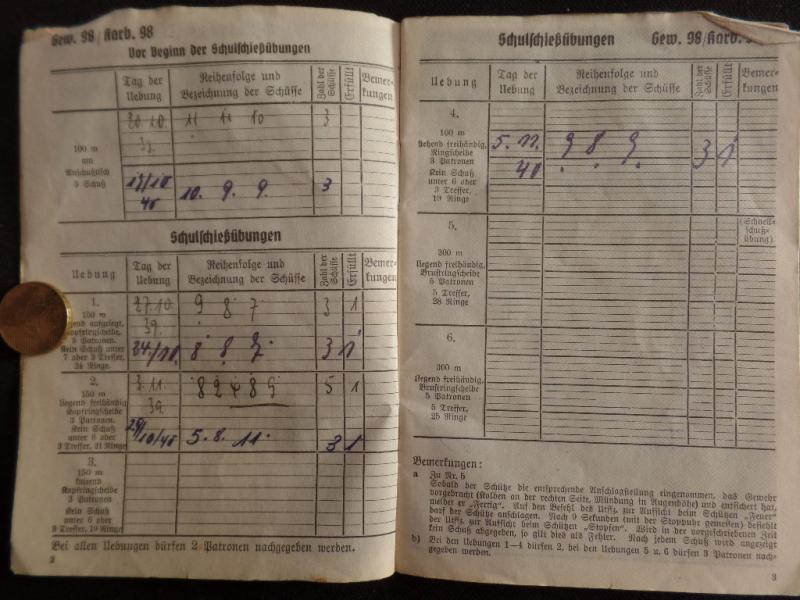 Gew. 98/Karb. 98
Vor Beginn der Schulschießübungen
Tag der Uebung
Reihenfolge und Bezeichnung der Schüsse
Zahl der Schüsse
Erfüllt
Bemerkungen
100 m
am
Anschußtisch
3 Schuß
20.10. 11 11 10 3
39.
17/10 10. 9. 9. 3
40
Schulschießübungen
Uebung
Tag der Uebung
Reihenfolge und Bezeichnung der Schüsse
Zahl der Schüsse
Erfüllt
Bemerkungen
1.
100 m
liegend aufgelegt,
Kopfringscheibe,
3 Patronen.
Kein Schuß unter
7 oder 3 Treffer,
24 Ringe.
27.10. 9 8 7 3 1
39.
24./10. 8 8 9 3 1
2.
150 m
liegend freihändig
Kopfringscheibe
3 Patronen.
Kein Schuß
unter 6 oder
3 Treffer, 21 Ringe
3.11. 8 2 4 8 5 5 1
39.
29/10/40 5. 8. 11. 3 1
3.
150 m
kniend
Kopfringscheibe
3 Patronen
Kein Schuß
unter 6 oder
3 Treffer, 19 Ringe
Bei allen Uebungen dürfen 2 Patronen nachgegeben werden.
2
Schulschießübungen Gew. 98/Karb.
Uebung
Tag der Uebung
Reihenfolge und Bezeichnung der Schüsse
Zahl der Schüsse
Erfüllt
Bemerkungen
4.
100 m
stehend freihändig,
Ringscheibe
3 Patronen
Kein Schuß
unter 6 oder
3 Treffer,
19 Ringe
5. 11. 9 8 9 3 1
40
5.
200 m
liegend freihändig,
Brustringscheibe
5 Patronen
5 Treffer,
28 Ringe
(Schnellschußübung)
6.
300 m
liegend freihändig
Brustringscheibe
5 Patronen
5 Treffer,
25 Ringe
Bemerkungen:
a Zu Nr. 5
Sobald der Schütze die entsprechende Anschlagstellung eingenommen, das Gewehr
vorgebracht (Kolben an der rechten Seite, Mündung in Augenhöhe) und entsichert hat,
meldet er „Fertig". Auf den Befehl des Uffz. zur Aufsicht beim Schützen „Feuer"
darf der Schütze anschlagen. Nach 9 Sekunden (mit der Stoppuhr gemessen) befiehlt
der Uffz. zur Aufsicht beim Schützen „Stopfen". Wird in der vorgeschriebenen Zeit
kein Schuß abgegeben, so gilt dies als Fehler. Nach jedem Schuß wird angezeigt
b) Bei den Uebungen 1—4 dürfen 2, bei den Uebungen 5 u. 6 dürfen 3 Patronen nachgegeben
werden.
3